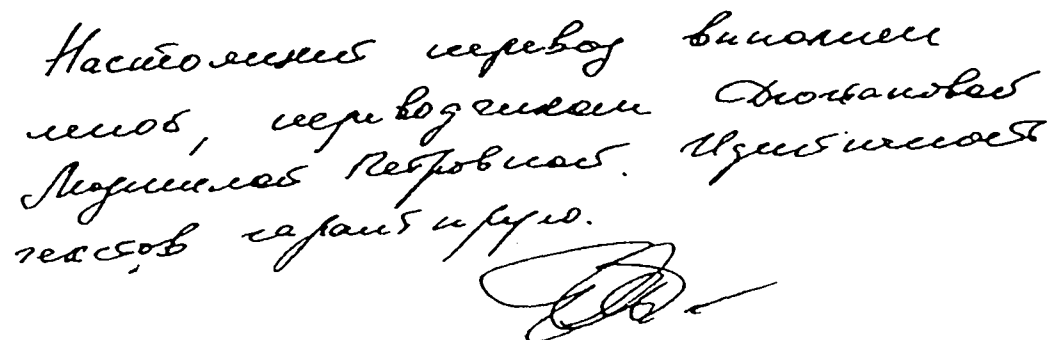 Настоящий перевод выполнен
мной, переводчиком
Людмилой Петровной. Идентичность
текстов гарантирую.